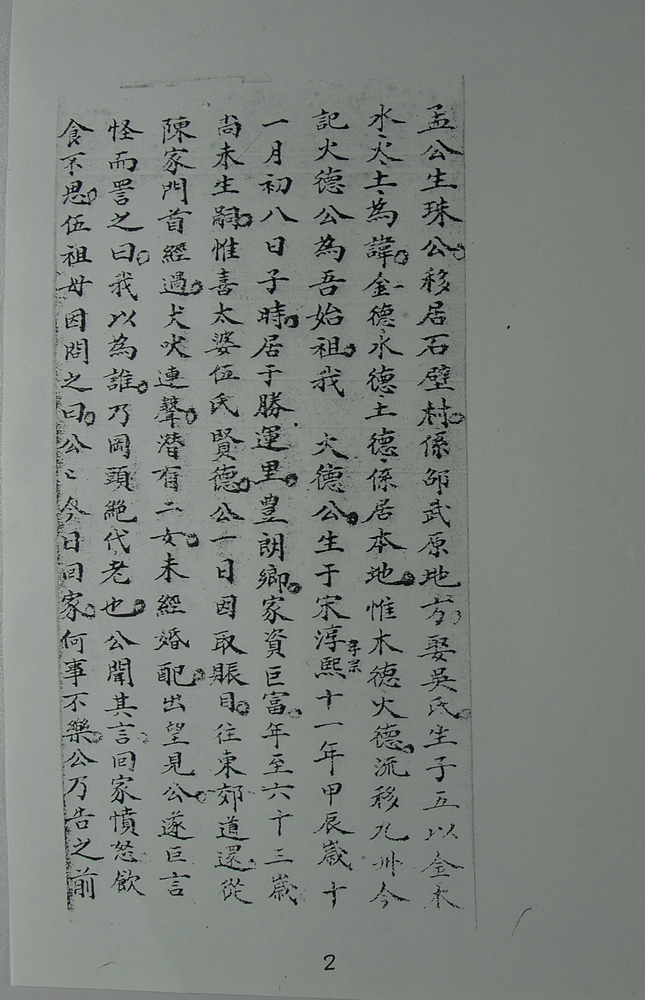 孟公生珠公。移居石壁村。係邵武原地方。娶吳氏。生子五以金木
水火土為諱。金德水德土德係居本地。惟木德火德。流移九州今
記火德公為吾始祖。我 火德公。生于宋淳熙孝宗十一年甲辰歲十
一月初八日子時。居于勝運里。豊朗鄉。家資巨富。年至六十三歲
尚未生嗣。惟喜太婆伍氏賢德。公一日因取賬目。往東郊道還。從
陳家門首經過。犬吠連聲。潜有二女。未經婚配。出望見公。遂巨言
怪而詈之曰。我以為誰。乃岡頭絶代老也。公聞其言。回家憤怒飲
食不思。伍祖母因問之曰。公〻今日回家。何事不樂。公乃告之前
2